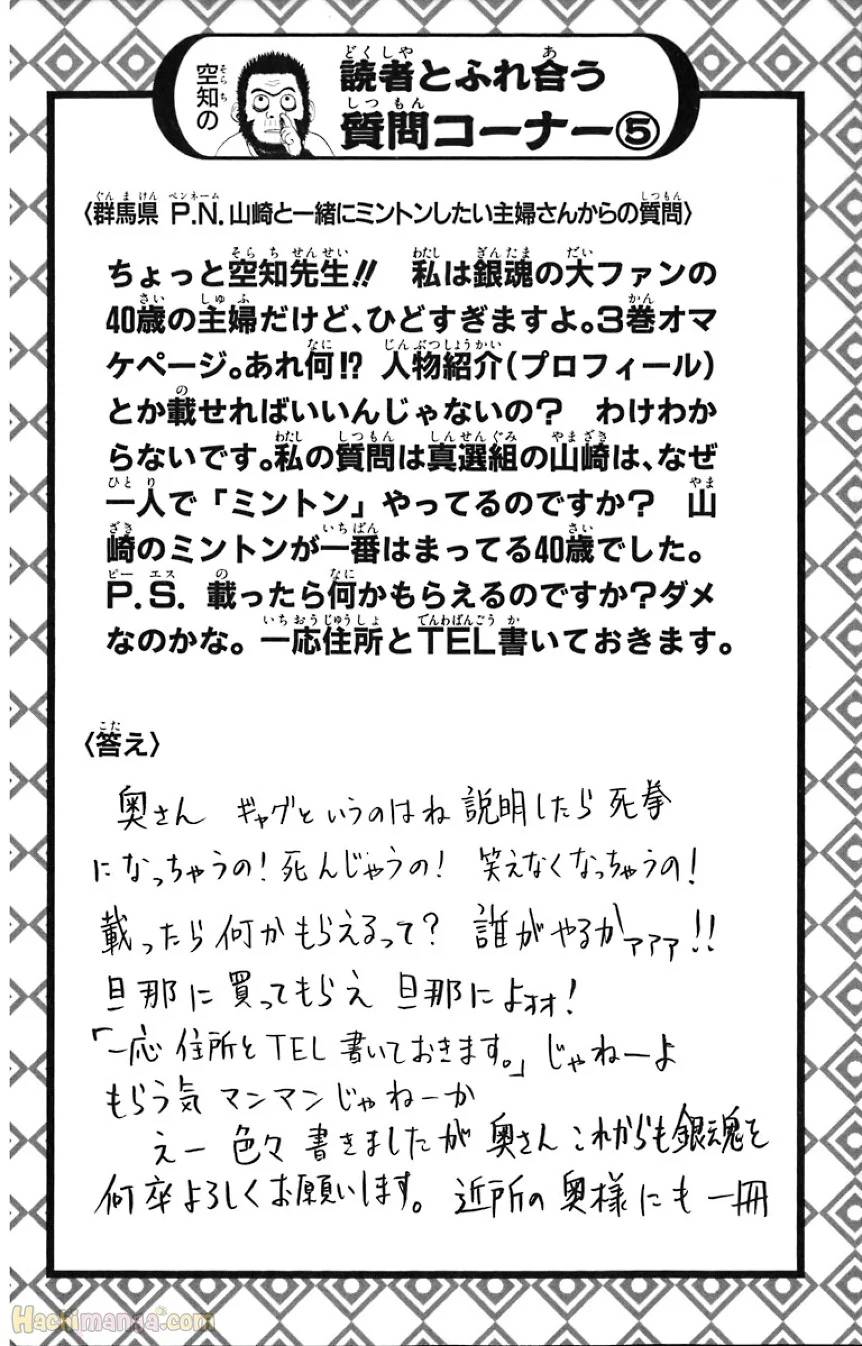 空知の
読者とふれ合う
質問コーナー⑤
〈群馬県 P.N.山崎と一緒にミントンしたい主婦さんからの質問〉
ちょっと空知先生!! 私は銀魂の大ファンの
40歳の主婦だけど、ひどすぎますよ。3巻オマ
ケページ。あれ何!? 人物紹介(プロフィール)
とか載せればいいんじゃないの? わけわか
らないです。私の質問は真選組の山崎は、なぜ
一人で「ミントン」やってるのですか? 山
崎のミントンが一番はまってる40歳でした。
P.S. 載ったら何かもらえるのですか?ダメ
なのかな。一応住所とTEL書いておきます。
〈答え〉
奥さん ギャグというのはね 説明したら 死拳
になっちゃうの!死んじゃうの! 笑えなくなっちゃうの!
載ったら何かもらえるって? 誰がやるかァァァ!!
旦那に買ってもらえ 旦那によォォ!
「一応 住所とTEL 書いておきます。」じゃねーよ
もらう気マンマンじゃねーか
えー 色々 書きましたが 奥さん これからも銀魂を
何卒よろしくお願いします。 近所の奥様にも 一冊
Hachimanga.com